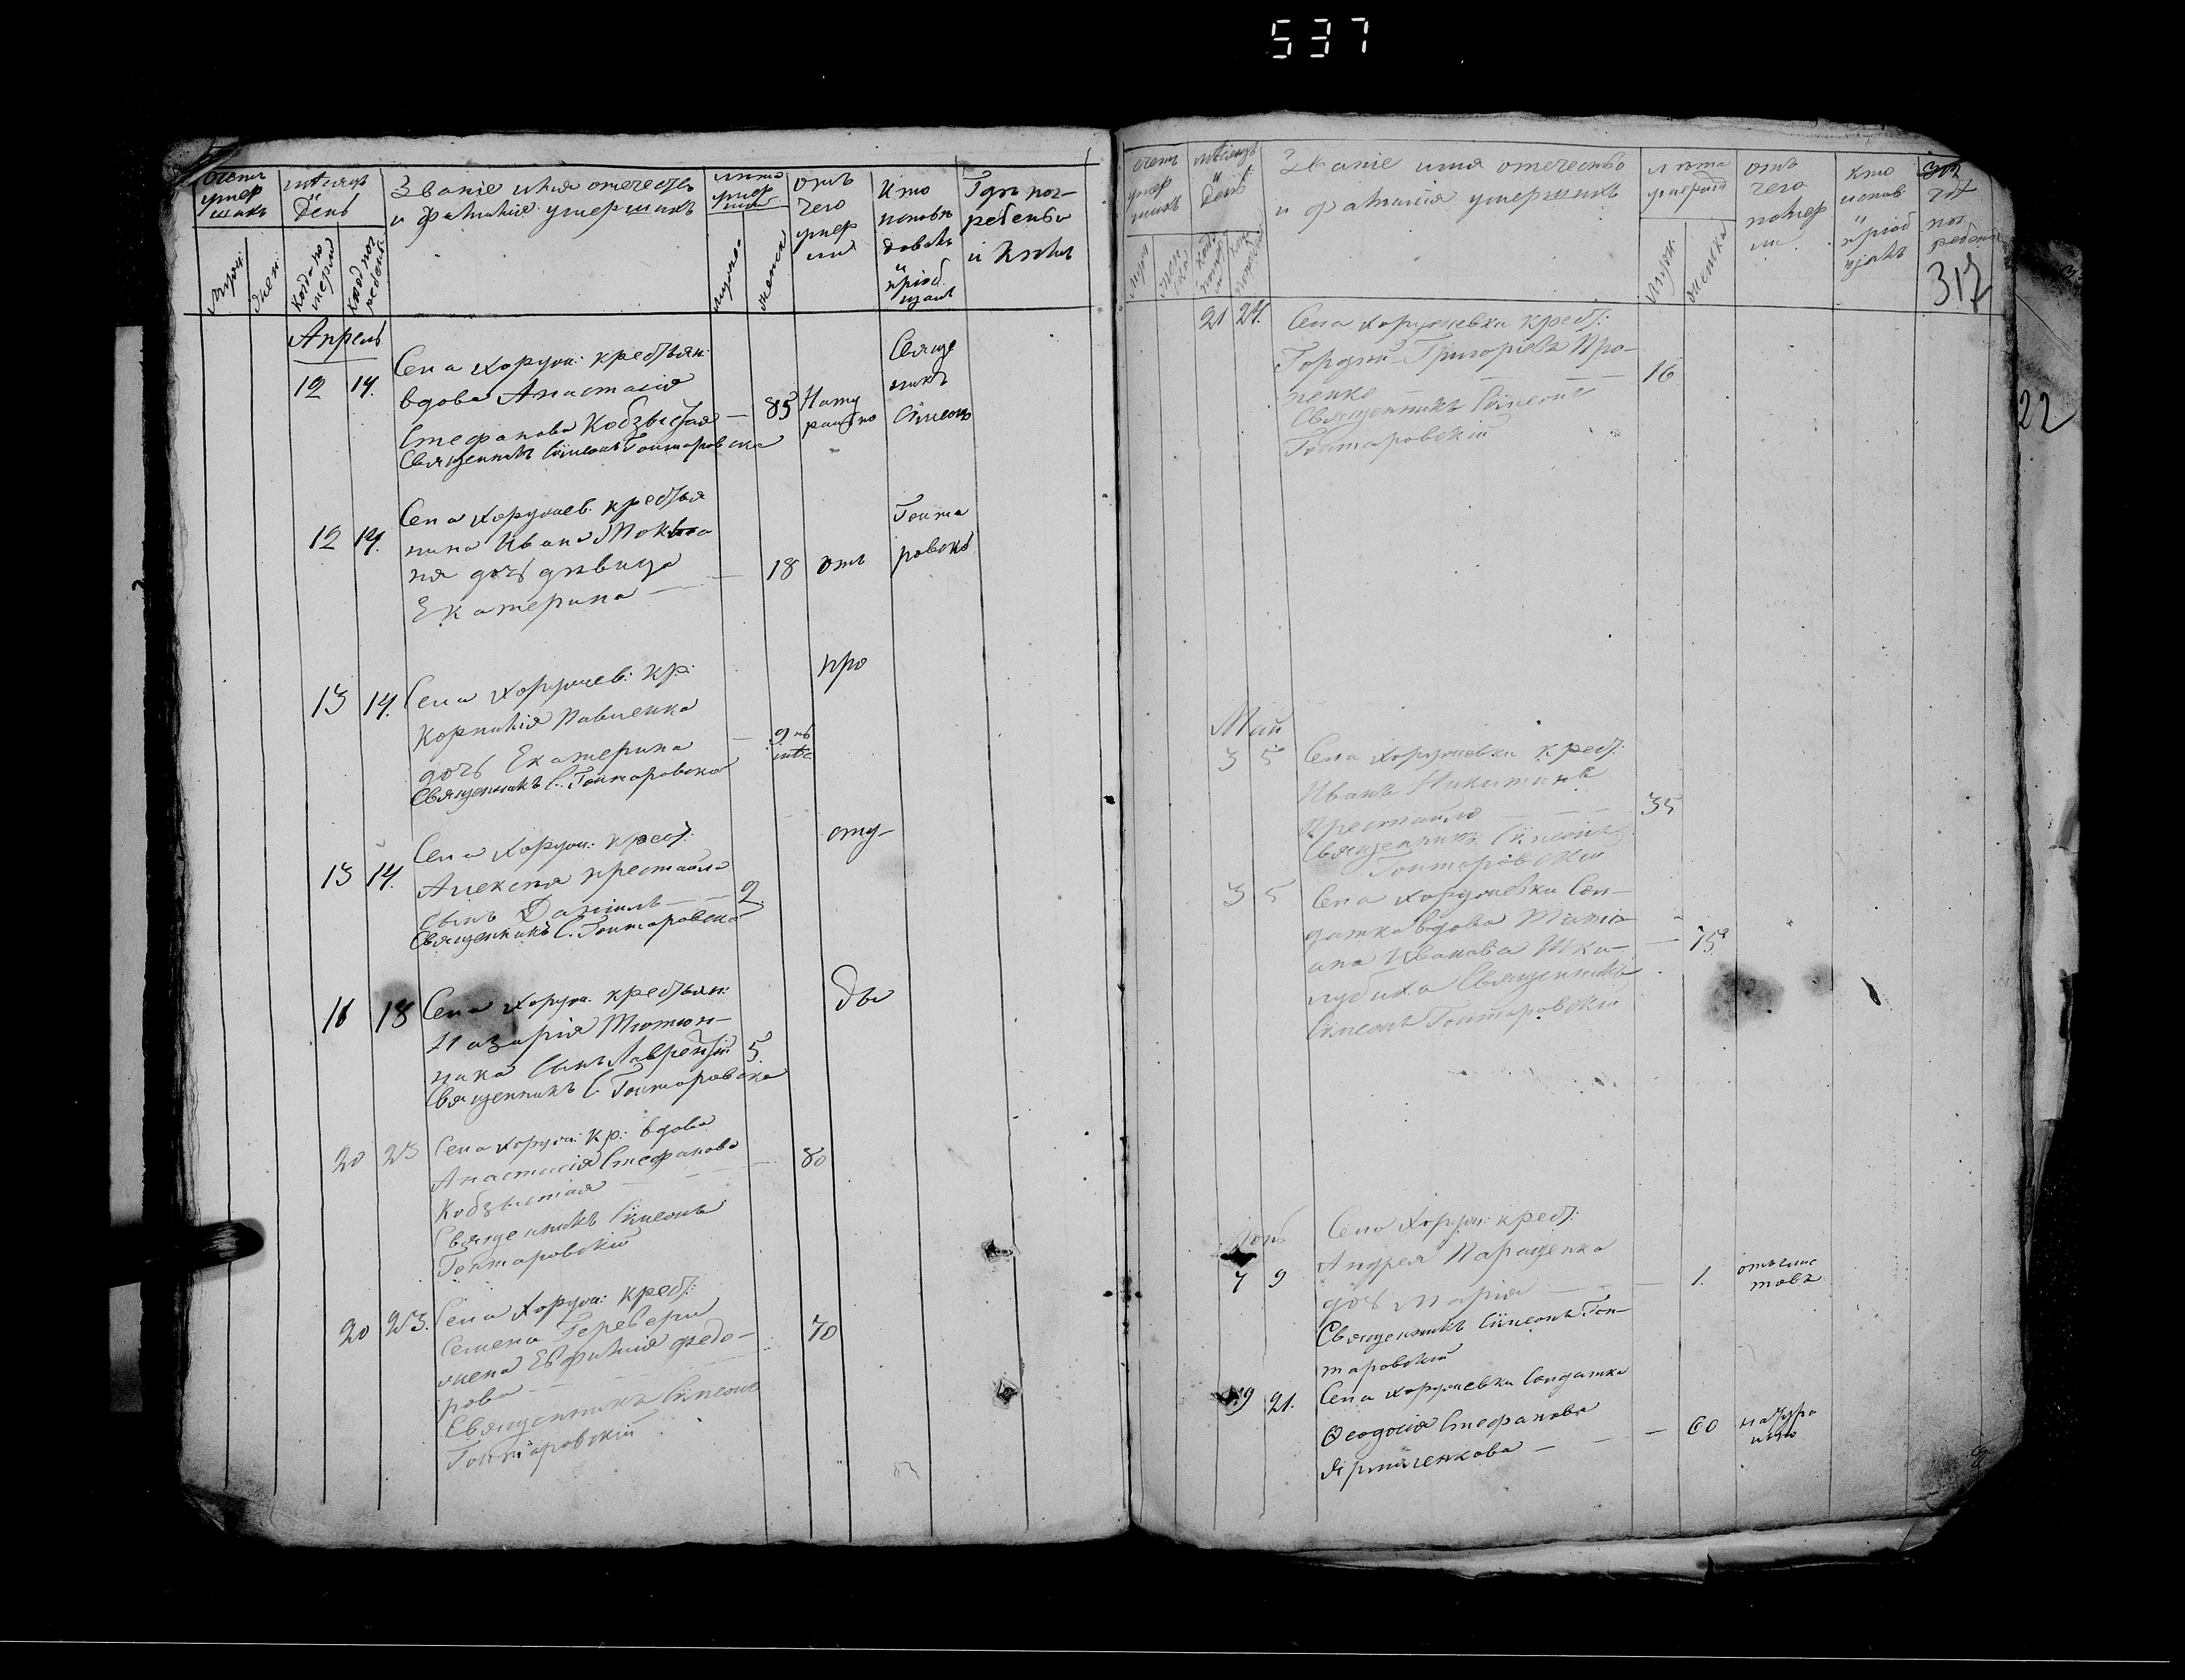 537
счетъ умер шихъ
мѣсяцъ и день
Званіе имя отечество
и фамилія умершихъ
лѣта умер шихъ
отъ чего умер ли
Кто исповѣ довалъ и пріоб щалъ
Гдѣ пог- ребены и кѣмъ
Апрель
12 14. Села Хоруж: крестьян:
вдова Анастасія
Стефанова Кобзыстая — 85 Нату рально
Священникъ Сѵмеонъ Гонтаровска
Свяще никъ Сѵмеонъ
12 14. Села Хоружев: крестья
нина Ивана
ня дочь дѣвица
Екатерина — 18 отъ
Гонта ровскій
13 14. Села Хоружев: кр:
Корнилія Павленка
дочь Екатерина — 9 мѣ
Священникъ С. Гонтаровска
про
13 14. Села Хоруж: крест:
Алексѣя Кресмайла
сынъ Даніилъ — 2
Священникъ С. Гонтаровска
сту-
16 18 Села Хоруж: крестьян:
Назарія Тютюн-
ника сынъ Лаврентій 5
Священникъ С. Гонтаровска
ды
20 23 Села Хоруж: кр: вдова
Анастасія Стефанова
Кобзыстая — 80
Священникъ Сѵмеонъ
Гонтаровскій
20 23. Села Хоруж: крест:
Семена Геревери
жена Евфимія Федо-
рова — 70
Священникъ Сѵмеонъ
Гонтаровскій
счетъ умер шихъ
мѣсяцъ и день
Званіе имя отечество
и фамилія умершихъ
лѣта
отъ чего помер ли
кто испов и пріоб щалъ
гдѣ пог ребены
317
22
21 24. Села Хоружевки крест:
Гордѣй Григорьевъ Про-
ненко — 16
Священникъ Сѵмеонъ
Гонтаровскій
Май
3 5 Села Хоружевки крест:
Иванъ Никитинъ
Кресмайло — 35
Священникъ Сѵмеонъ
Гонтаровскій
3 5 Села Хоружевки Сол-
датка вдова Татіа-
на Иванова Шка-
лубиха Священникъ — 75
Сѵмеонъ Гонтаровскій
Іюнь
7 9
Села Хоруж: крест:
Андрея Паращенка
дочь Марія — 1. отъ глис товъ
Священникъ Сѵмеонъ Гон-
таровскій
19 21. Села Хоружевки Солдатка
Ѳеодосія Стефанова
Ярмаченкова — 60 натура льно